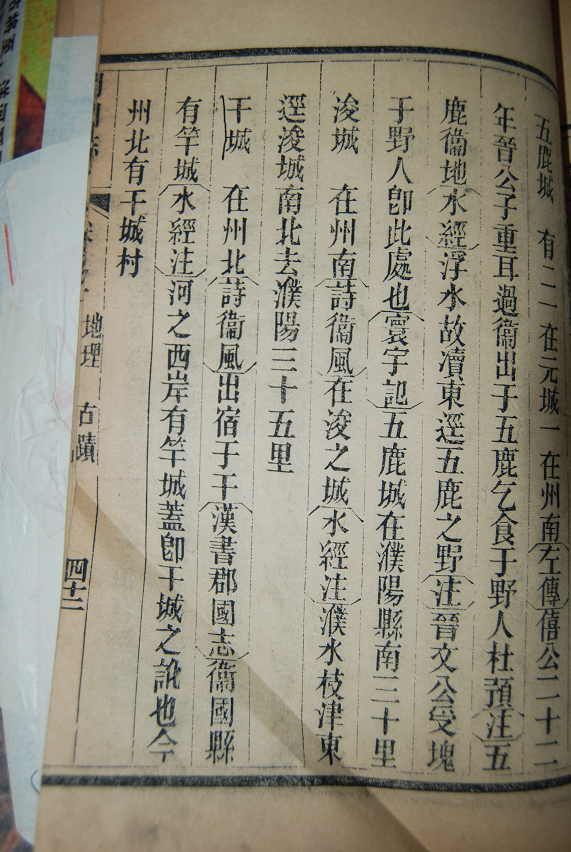 五鹿城 有二一在元城一在州南左傳僖公二十二
年晉公子重耳過衞出于五鹿乞食于野人杜預注五
鹿衞地水經浮水故瀆東逕五鹿之野注晉文公受塊
于野人卽此處也寰宇記五鹿城在濮陽縣南三十里
浚城 在州南詩衞風在浚之城水經注濮水枝津東
逕浚城南北去濮陽三十五里
干城 在州北詩衞風出宿于干漢書郡國志衞國縣
有竿城水經注河之西岸有竿城蓋卽干城之訛也今
州北有干城村
地理 古蹟 四十二